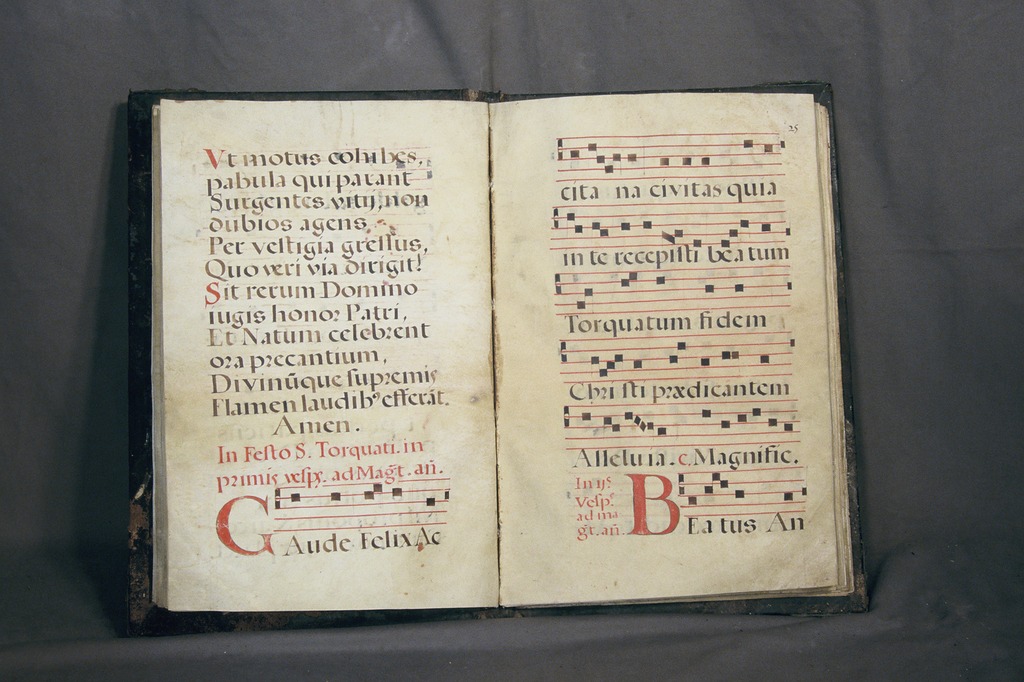 Vt motus cohibes,
pabula qui parant
Surgentes vitij, non
dubios agens
Per vestigia gressus,
Quo veri via dirigit!
Sit rerum Domino
iugis honor Patri,
Et Natum celebrent
ora precantium,
Divinũque supremis
Flamen laudibꝰ efferãt.
Amen.
In Festo S. Torquati. in
primis vesp̃. ad Magt. añ.
GAude Felix Ac
25
cita na civitas quia
in te recepisti beatum
Torquatum fidem
Chri sti prædicantem
Alleluia. c. Magnific.
In ijs
Vesp.
ad ma
gt. añ.
BEa tus An